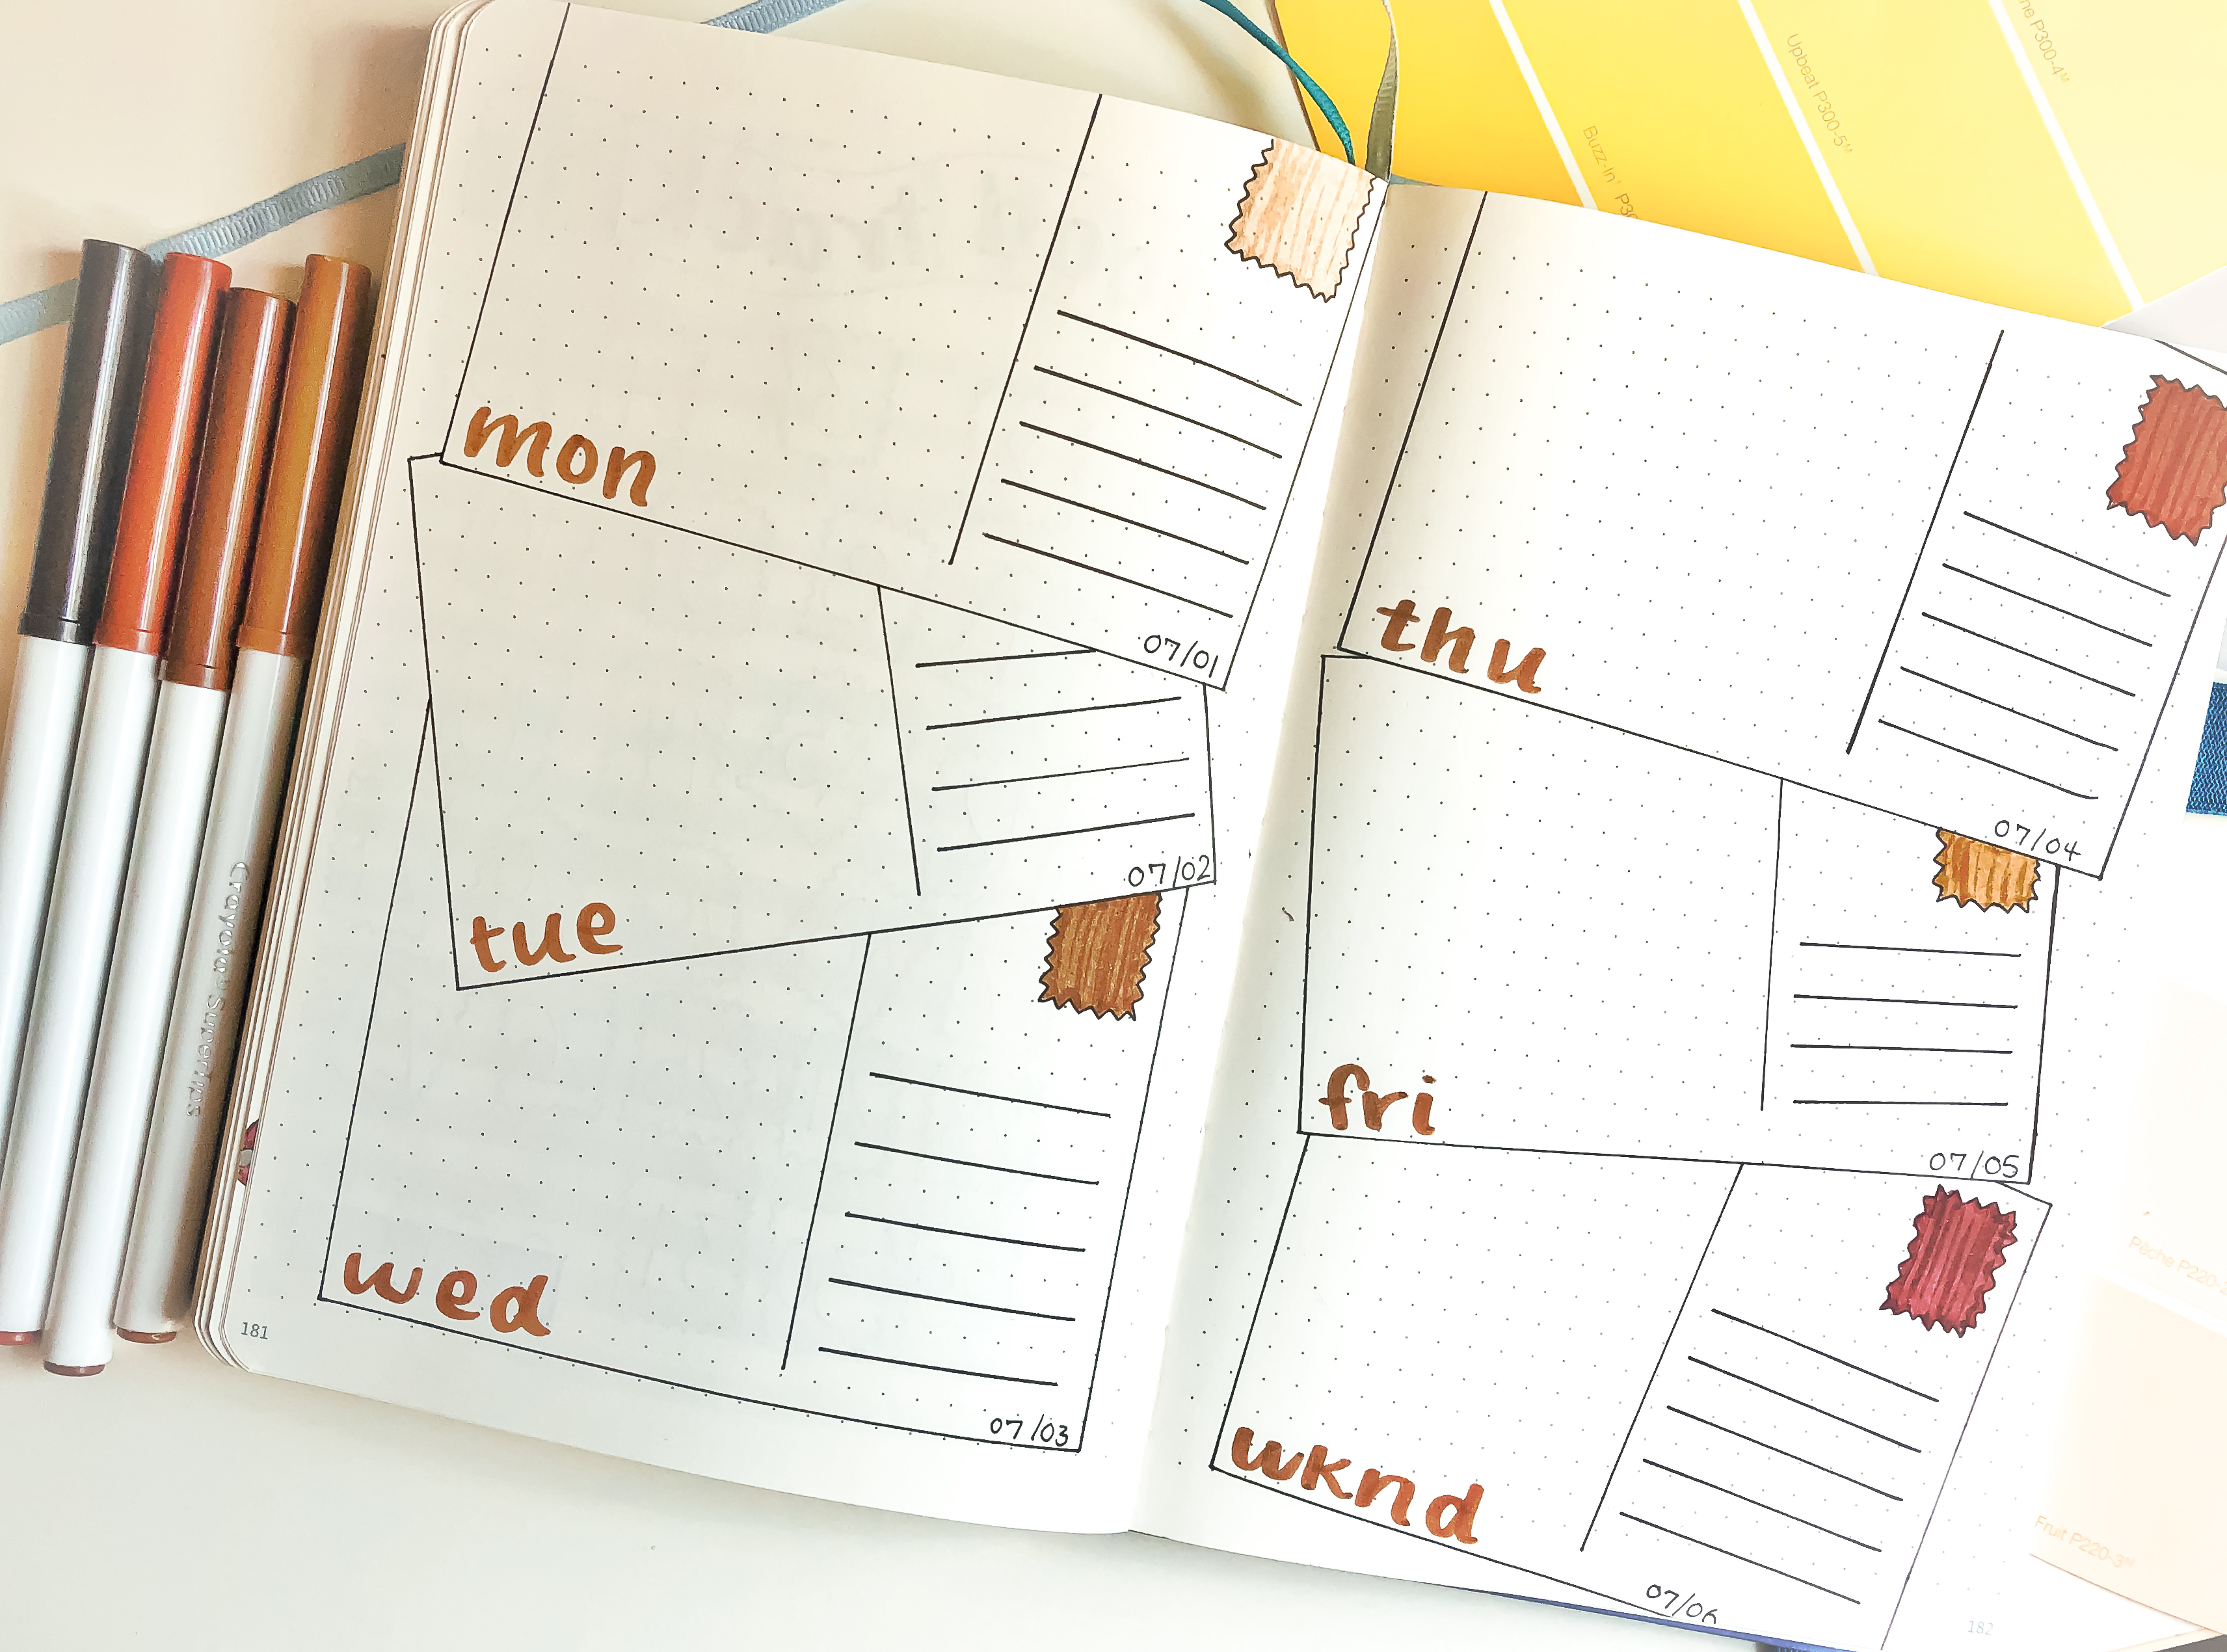 mon
07/01
tue
07/02
wed
07/03
181
thu
07/04
fri
07/05
wknd
07/06
182
Crayola SuperTips
Buzz-In'
Upbeat P300-5M
P300-4M
Pêche P220-
Fruit P220-3M